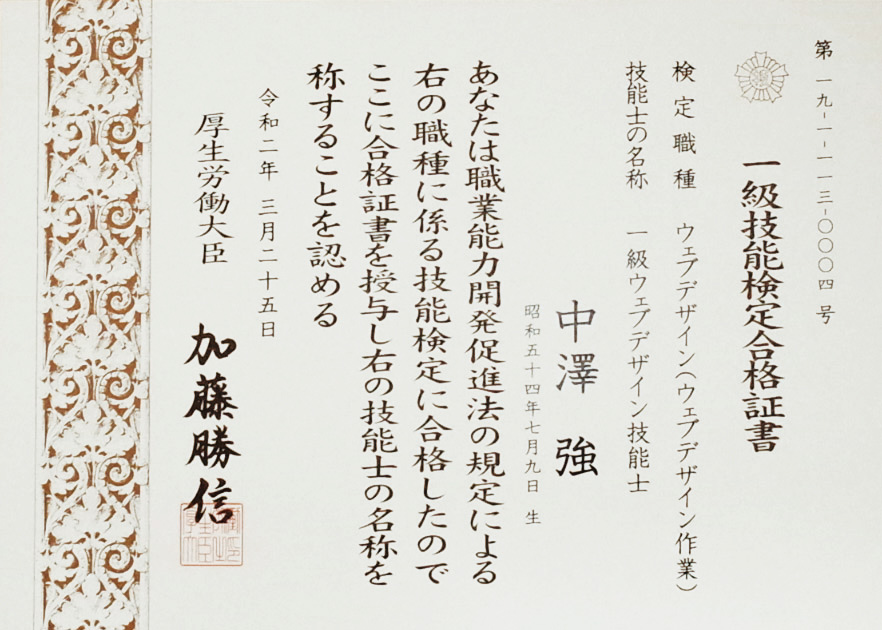 第一九-一-一一三-〇〇〇四号
一級技能検定合格証書
検定職種 ウェブデザイン(ウェブデザイン作業)
技能士の名称 一級ウェブデザイン技能士
中澤 強
昭和五十四年七月九日 生
あなたは職業能力開発促進法の規定による
右の職種に係る技能検定に合格したので
ここに合格証書を授与し右の技能士の名称を
称することを認める
令和二年 三月二十五日
厚生労働大臣 加藤勝信